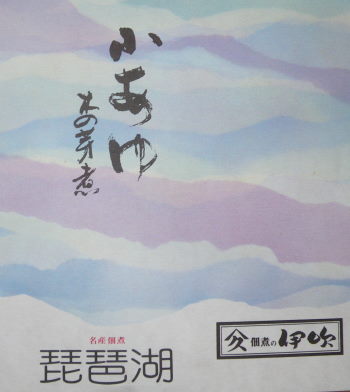 小あゆ
木の芽煮
名産佃煮
琵琶湖
佃煮の伊吹